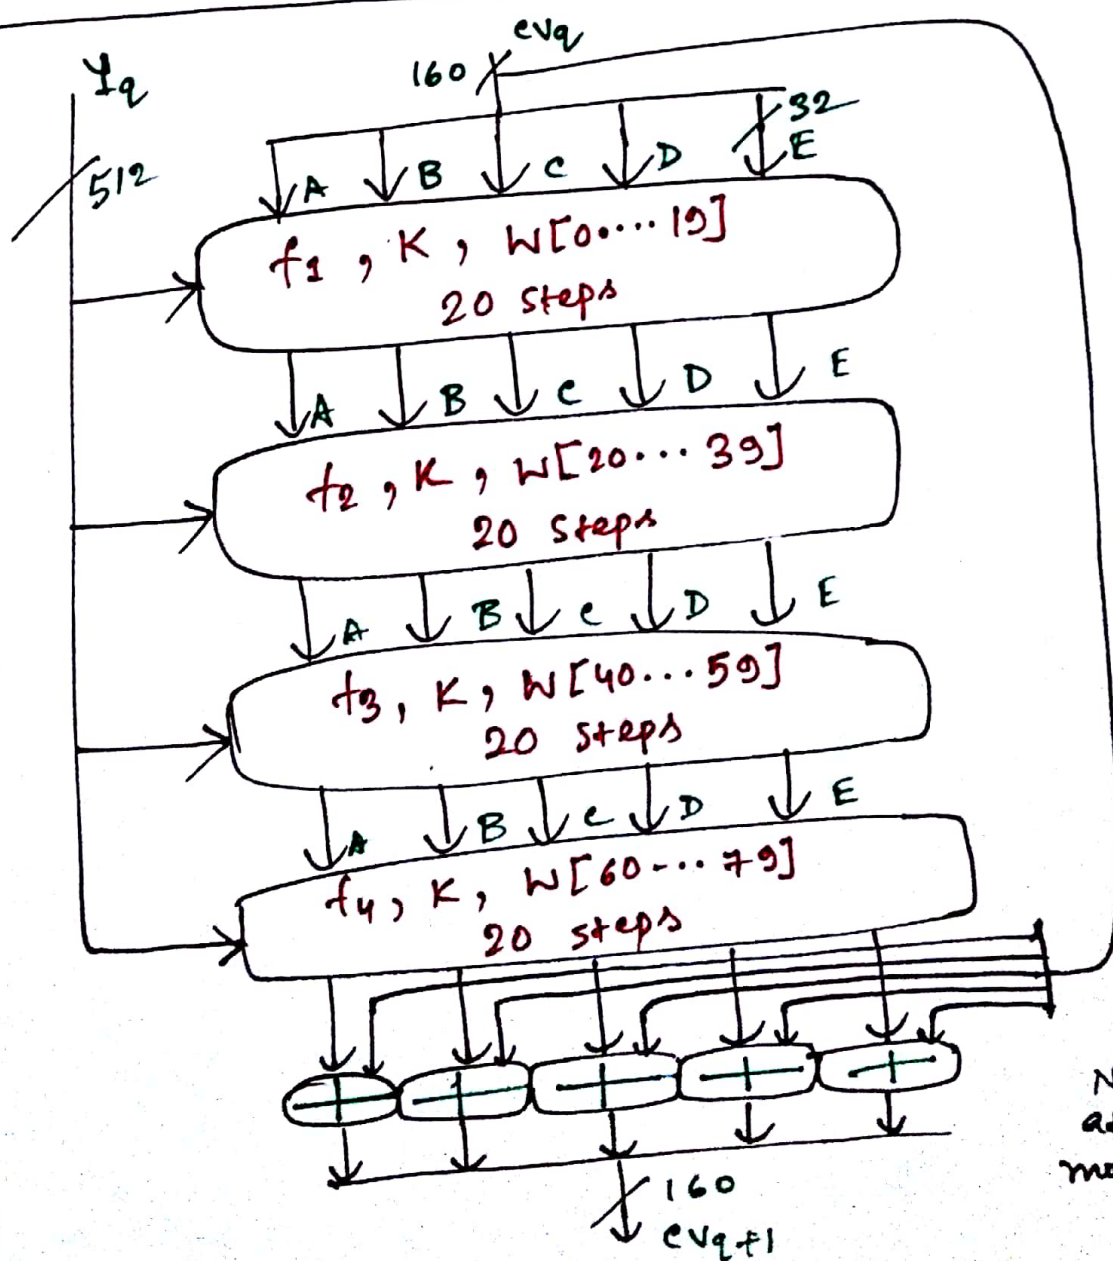 CVq
Yq
160
512
32
A B C D E
f1 , K , W[0....19]
20 Steps
A B C D E
f2 , K , W[20...39]
20 Steps
A B C D E
f3, K, W[40...59]
20 Steps
A B C D E
f4, K, W[60...79]
20 steps
+ + + + +
160
CVq+1